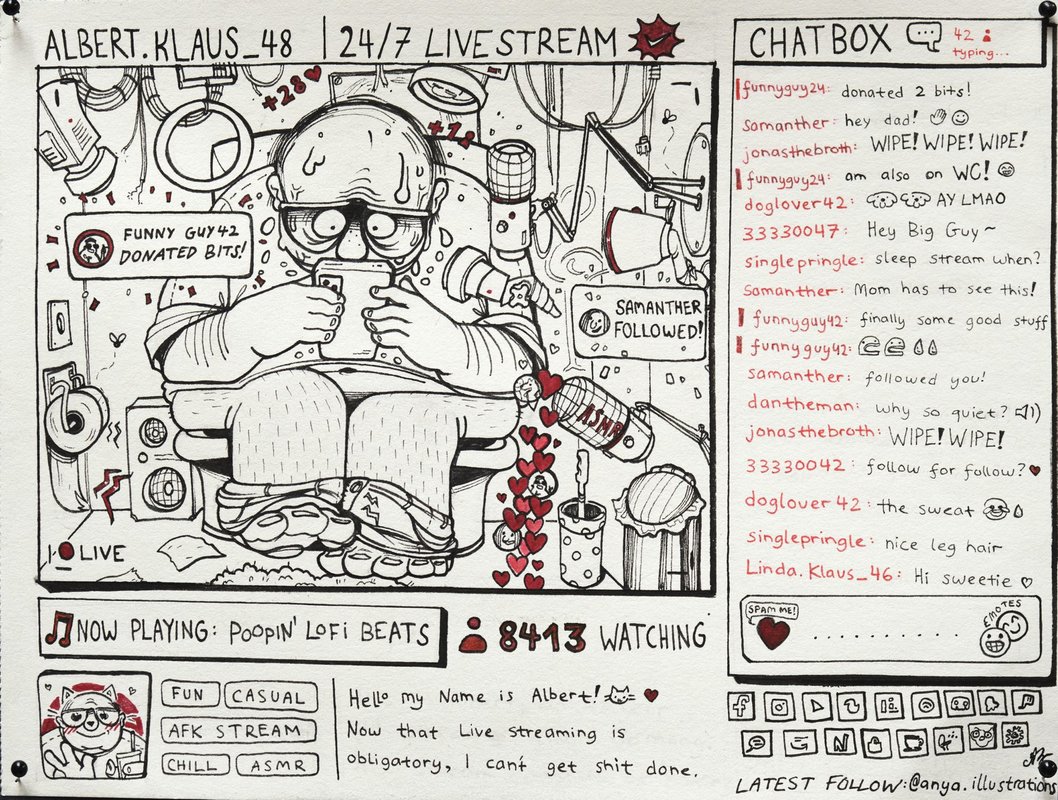 ALBERT.KLAUS_48 | 24/7 LIVESTREAM
+28
+12
FUNNY GUY42
DONATED BITS!
SAMANTHER
FOLLOWED!
ASMR
LIVE
CHATBOX
42
typing...
funnyguy24: donated 2 bits!
samanther: hey dad!
jonasthebroth: WIPE! WIPE! WIPE!
funnyguy24: am also on WC!
doglover42: AY LMAO
33330047: Hey Big Guy~
singlepringle: sleep stream when?
samanther: Mom has to see this!
funnyguy42: finally some good stuff
funnyguy42:
samanther: followed you!
dantheman: why so quiet?
jonasthebroth: WIPE! WIPE!
33330042: follow for follow?
doglover42: the sweat
singlepringle: nice leg hair
Linda.Klaus_46: Hi sweetie
SPAM ME!
..........
EMOTES
NOW PLAYING: POOPIN' LOFI BEATS
8413 WATCHING
FUN
CASUAL
AFK STREAM
CHILL
ASMR
Hello my Name is Albert!
Now that Live streaming is
obligatory, I can't get shit done.
LATEST FOLLOW:@anya.illustrations